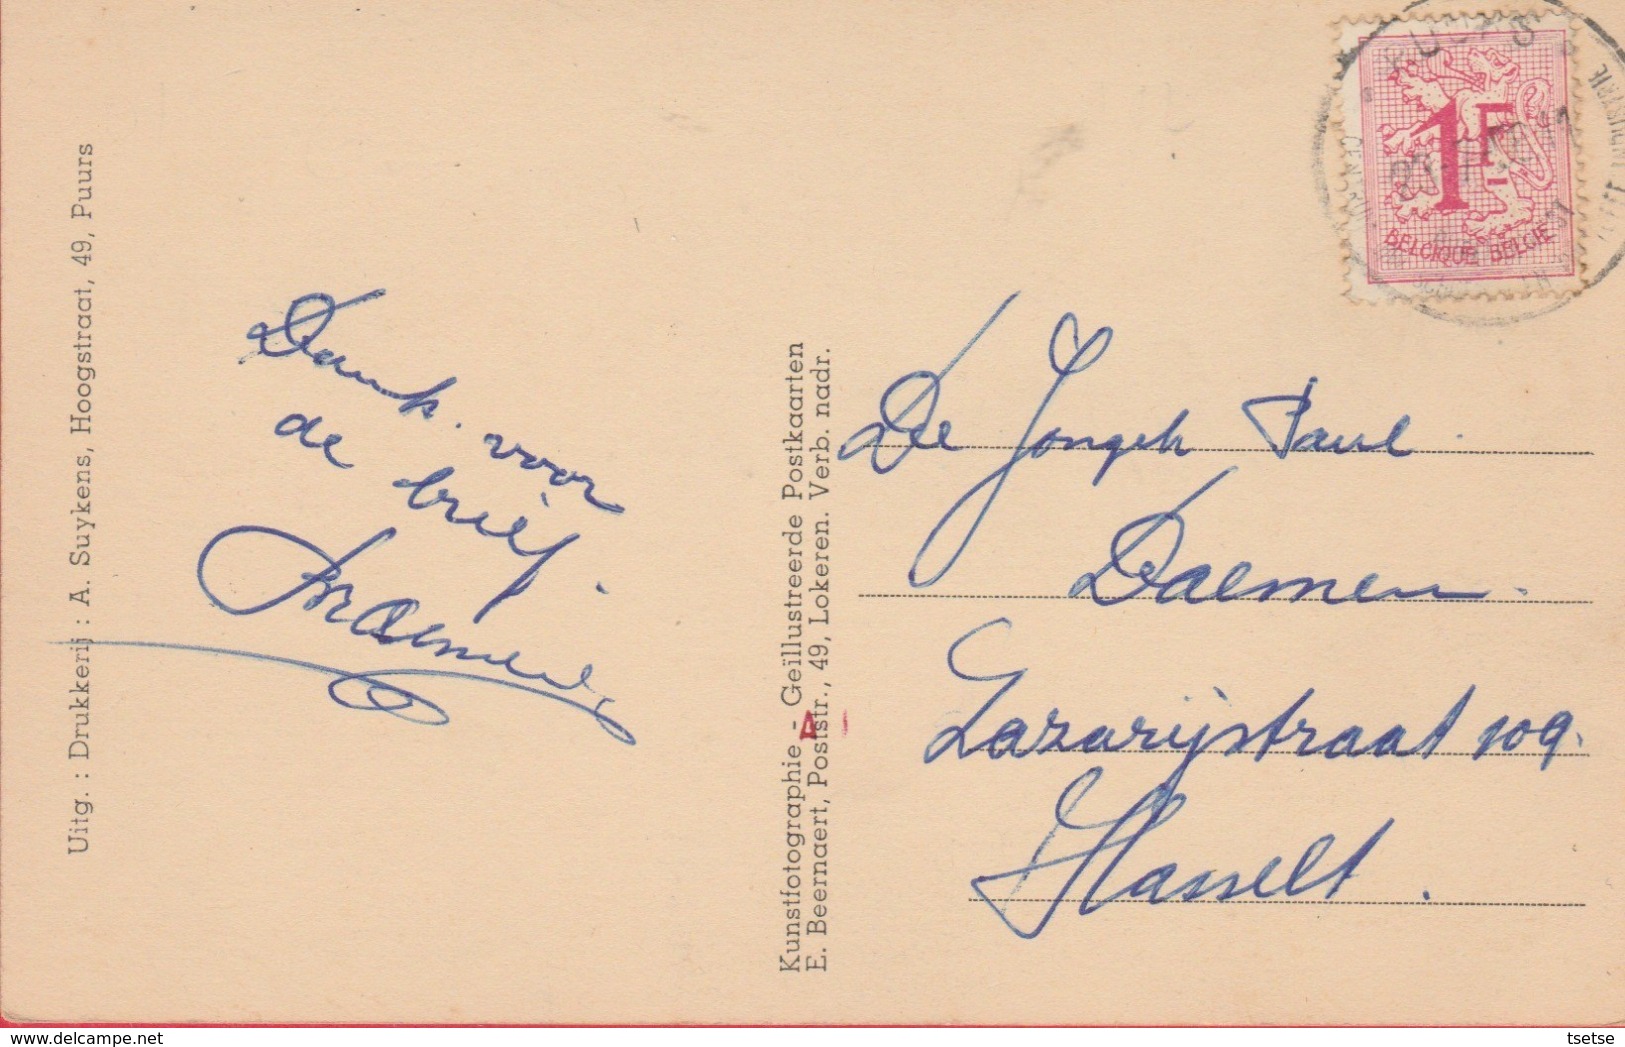 Uitg. : Drukkerij : A. Suykens, Hoogstraat, 49, Puurs
Dank voor
de brief.
Kunstfotographie - Geïllustreerde Postkaarten
E. Beernaert, Poststr., 49, Lokeren. Verb. nadr.
A
PUURS
1F
BELGIQUE BELGIE
De Jongh Paul
Daemen.
Lazarijstraat 109.
Hasselt.
tsetse